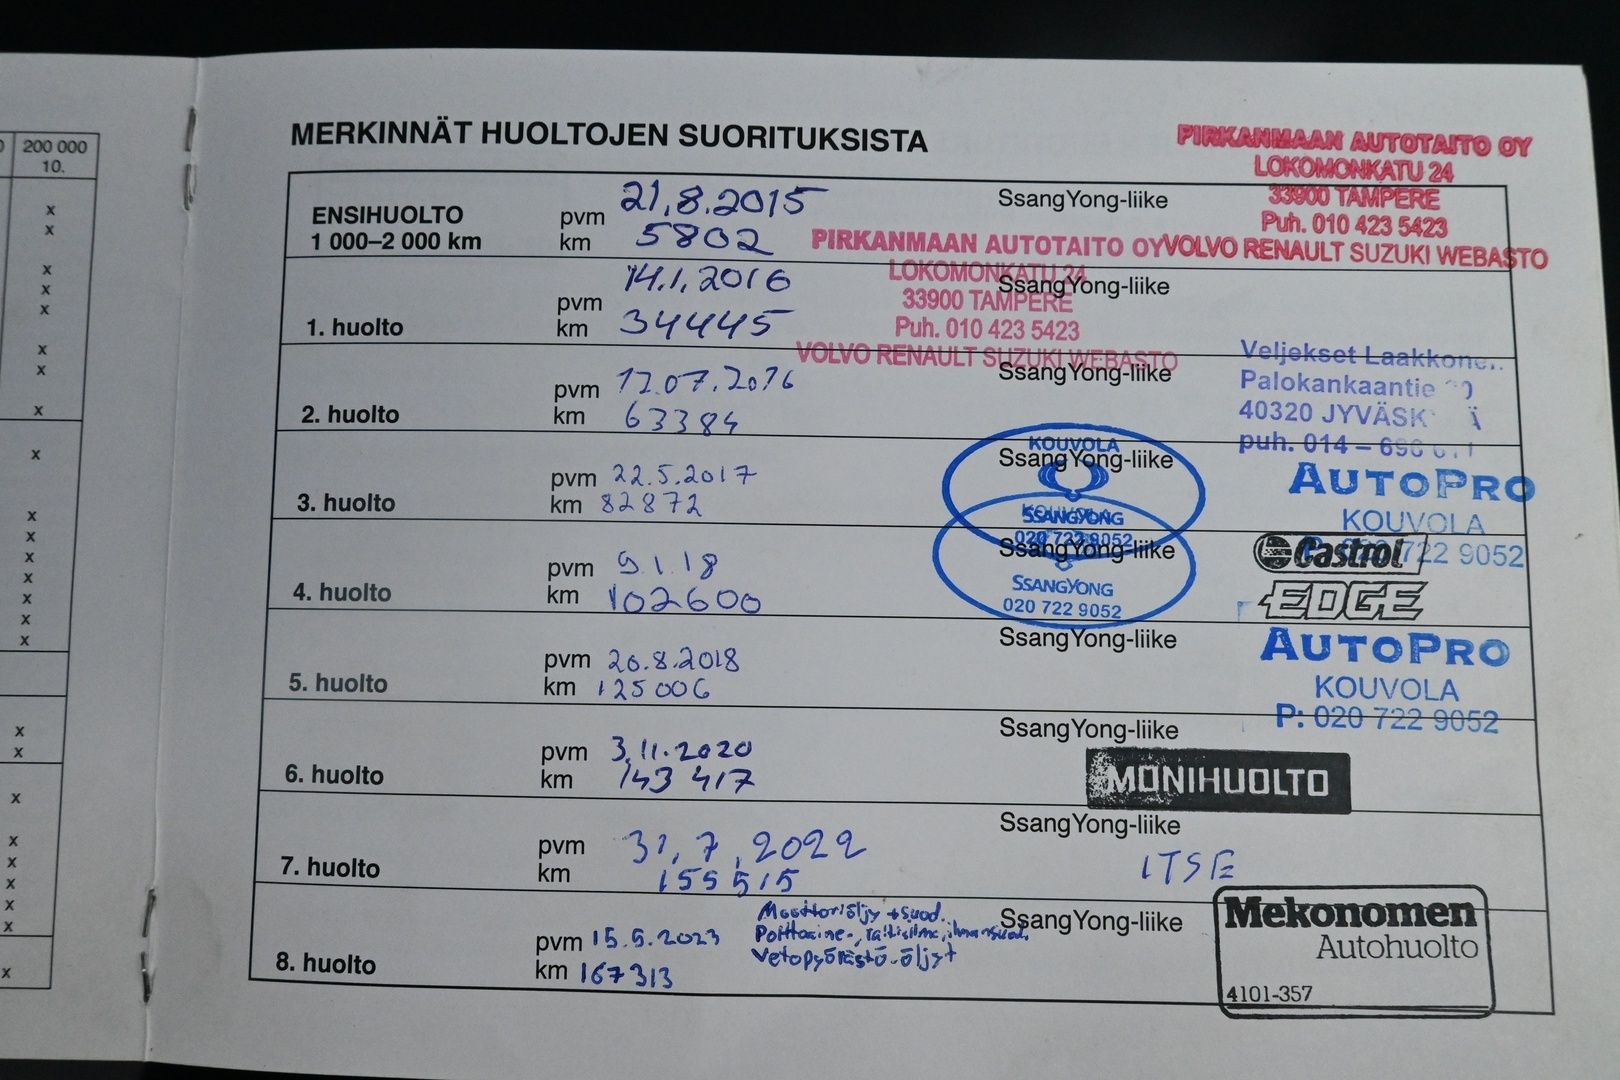 200 000
10.
x
x
x
x
x
x
x
x
x
x
x
x
x
x
x
x
x
x
x
x
x
x
x
x
MERKINNÄT HUOLTOJEN SUORITUKSISTA
PIRKANMAAN AUTOTAITO OY
LOKOMONKATU 24
33900 TAMPERE
Puh. 010 423 5423
VOLVO RENAULT SUZUKI WEBASTO
ENSIHUOLTO
1 000–2 000 km
pvm 21.8.2015
km 5802
SsangYong-liike
PIRKANMAAN AUTOTAITO OY
LOKOMONKATU 24
33900 TAMPERE
Puh. 010 423 5423
VOLVO RENAULT SUZUKI WEBASTO
1. huolto
pvm 14.1.2016
km 34445
SsangYong-liike
2. huolto
pvm 12.07.2016
km 63384
SsangYong-liike
Veljekset
Palokankaantie
40320
puh. 014 –
3. huolto
pvm 22.5.2017
km 82872
SsangYong-liike
KOUVOLA
SSANGYONG
020 722 9052
AUTOPRO
KOUVOLA
722 9052
4. huolto
pvm 9.1.18
km 102600
SsangYong-liike
SSANGYONG
020 722 9052
Castrol
EDGE
5. huolto
pvm 20.8.2018
km 125006
SsangYong-liike
AUTOPRO
KOUVOLA
P: 020 722 9052
6. huolto
pvm 3.11.2020
km 143 417
SsangYong-liike
MONIHUOLTO
7. huolto
pvm 31,7,2022
km 155515
SsangYong-liike
ITSE
8. huolto
pvm 15.5.2023
km 167313
Moottoriöljy + suod.
Polttoaine-, raitisilma, ilmansuod.
Vetopyörästö-öljyt
SsangYong-liike
Mekonomen
Autohuolto
4101-357